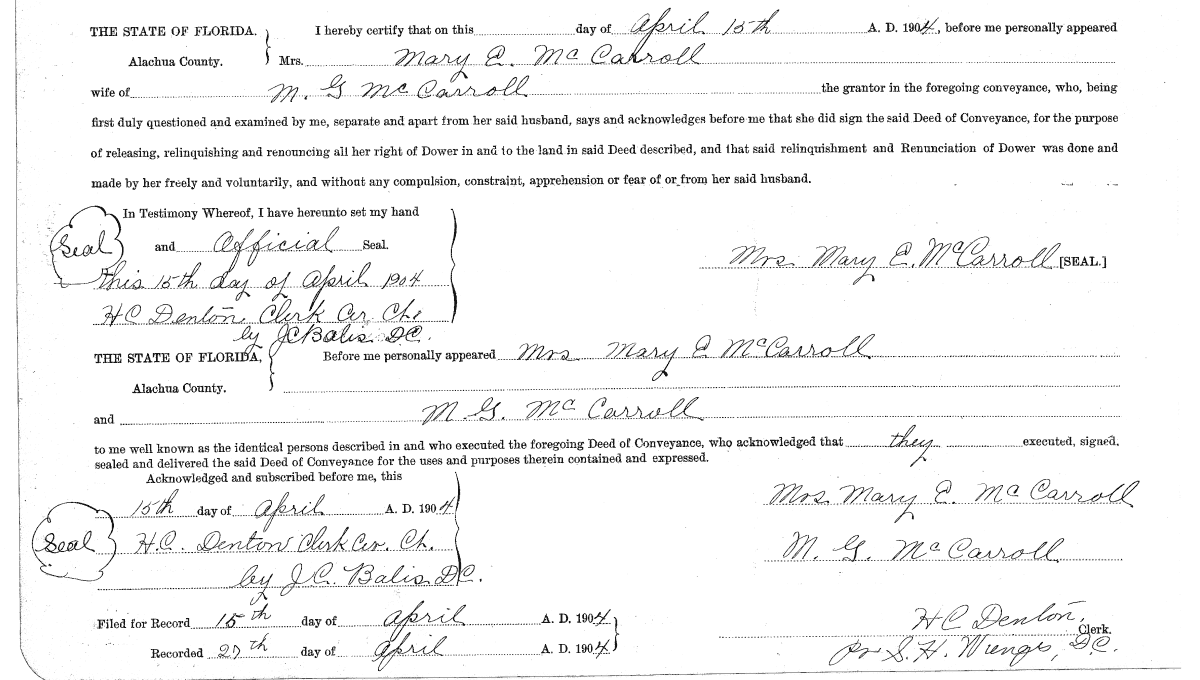 THE STATE OF FLORIDA. I hereby certify that on this day of April 15th A. D. 1904, before me personally appeared
Alachua County. Mrs. Mary E. McCarroll
wife of M. G McCarroll the grantor in the foregoing conveyance, who, being
first duly questioned and examined by me, separate and apart from her said husband, says and acknowledges before me that she did sign the said Deed of Conveyance, for the purpose
of releasing, relinquishing and renouncing all her right of Dower in and to the land in said Deed described, and that said relinquishment and Renunciation of Dower was done and
made by her freely and voluntarily, and without any compulsion, constraint, apprehension or fear of or from her said husband.
In Testimony Whereof, I have hereunto set my hand
Seal and Official Seal.
Mrs Mary E. McCarroll [SEAL.]
this 15th day of April 1904
HC Denton Clerk Cir. Ct.
by JC Balis D.C.
THE STATE OF FLORIDA, Before me personally appeared Mrs Mary E McCarroll
Alachua County.
and M. G. McCarroll
to me well known as the identical persons described in and who executed the foregoing Deed of Conveyance, who acknowledged that they executed, signed,
sealed and delivered the said Deed of Conveyance for the uses and purposes therein contained and expressed.
Acknowledged and subscribed before me, this
15th day of April A. D. 1904
Mrs Mary E. McCarroll
Seal H.C. Denton Clerk Cir. Ct.
M. G. McCarroll
by J.C. Balis D.C.
Filed for Record 15th day of April A. D. 1904
HC Denton, Clerk.
Recorded 27th day of April A. D. 1904
Per S. H. D.C.